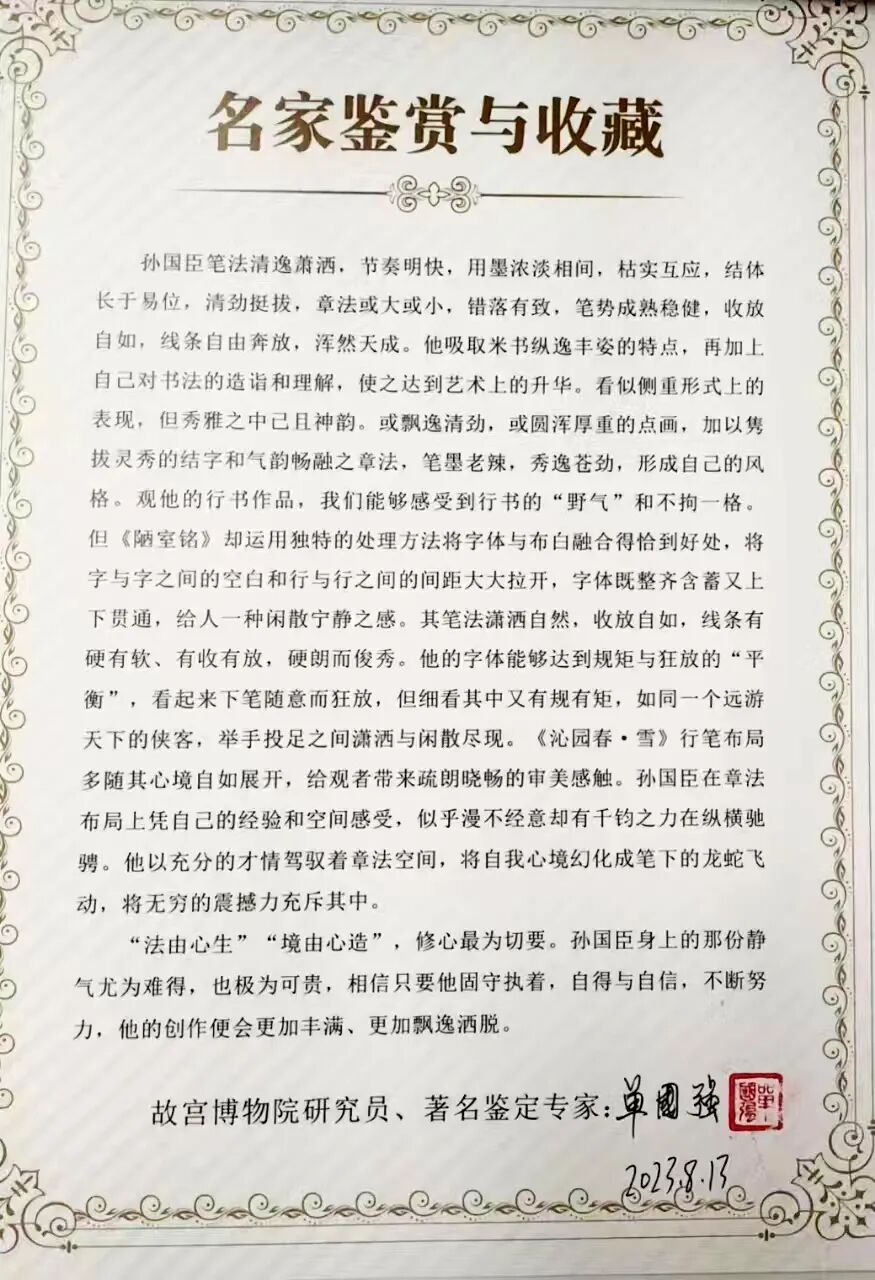 名家鉴赏与收藏
孙国臣笔法清逸萧洒，节奏明快，用墨浓淡相间，枯实互应，结体
长于易位，清劲挺拔，章法或大或小，错落有致，笔势成熟稳健，收放
自如，线条自由奔放，浑然天成。他吸取米书纵逸丰姿的特点，再加上
自己对书法的造诣和理解，使之达到艺术上的升华。看似侧重形式上的
表现，但秀雅之中己且神韵。或飘逸清劲，或圆浑厚重的点画，加以隽
拔灵秀的结字和气韵畅融之章法，笔墨老辣，秀逸苍劲，形成自己的风
格。观他的行书作品，我们能够感受到行书的“野气”和不拘一格。
但《陋室铭》却运用独特的处理方法将字体与布白融合得恰到好处，将
字与字之间的空白和行与行之间的间距大大拉开，字体既整齐含蓄又上
下贯通，给人一种闲散宁静之感。其笔法潇洒自然，收放自如，线条有
硬有软、有收有放，硬朗而俊秀。他的字体能够达到规矩与狂放的“平
衡”，看起来下笔随意而狂放，但细看其中又有规有矩，如同一个远游
天下的侠客，举手投足之间潇洒与闲散尽现。《沁园春·雪》行笔布局
多随其心境自如展开，给观者带来疏朗晓畅的审美感触。孙国臣在章法
布局上凭自己的经验和空间感受，似乎漫不经意却有千钧之力在纵横驰
骋。他以充分的才情驾驭着章法空间，将自我心境幻化成笔下的龙蛇飞
动，将无穷的震撼力充斥其中。
“法由心生”“境由心造”，修心最为切要。孙国臣身上的那份静
气尤为难得，也极为可贵，相信只要他固守执着，自得与自信，不断努
力，他的创作便会更加丰满、更加飘逸洒脱。
故宫博物院研究员、著名鉴定专家：单國强
2023.8.13